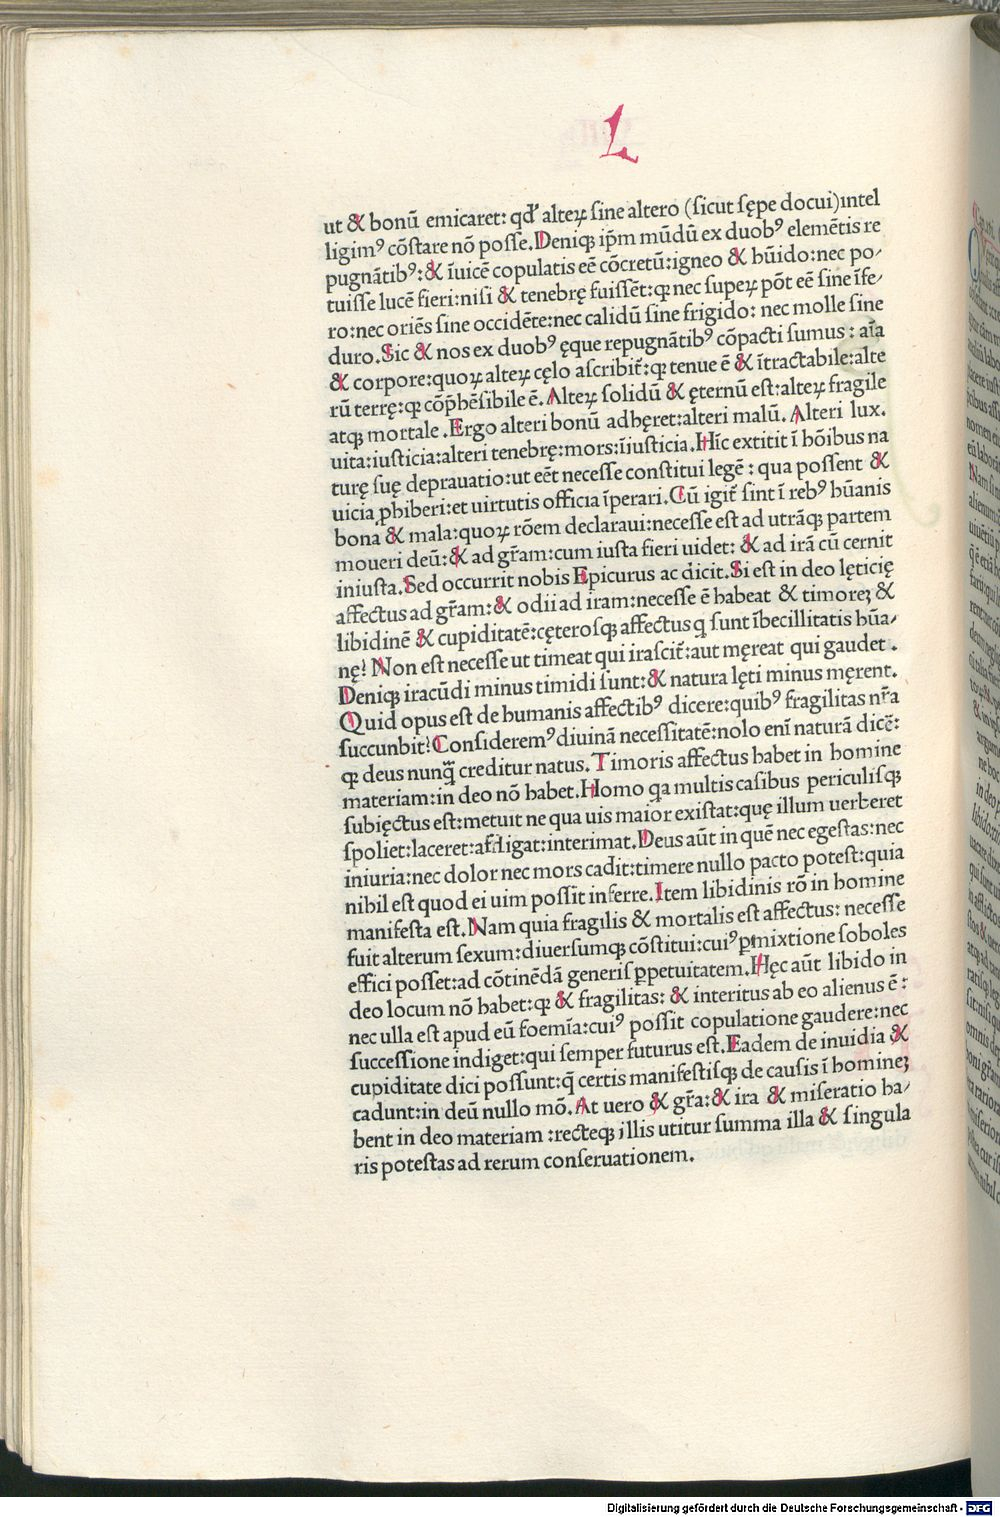 L
ut & bonū emicaret: qđ alteꝝ ſine altero (ſicut ſępe docui) intel
ligimꝰ cōſtare nō poſſe. Deniqꝫ ip̄m mūdū ex duobꝰ elemētis re
pugnātibꝰ: & īuicē copulatis eē cōcretū: igneo & hūido: nec po⸗
tuiſſe lucē fieri: niſi & tenebrę fuiſſēt: qꝫ nec ſupeꝝ pōt eē ſine īfe⸗
ro: nec oriēs ſine occidēte: nec calidū ſine frigido: nec molle ſine
duro. Sic & nos ex duobꝰ ęque repugnātibꝰ cōpacti ſumus: aīa
& corpore: quoꝝ alteꝝ cęlo aſcribit᷑: qꝫ tenue ē & ītractabile: alte
rū terrę: qꝫ cōp̄hēſibile ē. Alteꝝ ſolidū & ęternū eſt: alteꝝ fragile
atqꝫ mortale. Ergo alteri bonū adhęret: alteri malū. Alteri lux.
uita: iuſticia: alteri tenebrę: mors: īiuſticia. Hīc extitit ī hōibus na
turę ſuę deprauatio: ut eēt neceſſe conſtitui legē: qua poſſent &
uicia ꝓhiberi: et uirtutis officia īperari. Cū igit᷑ ſint ī rebꝰ hūanis
bona & mala: quoꝝ rōem declaraui: neceſſe eſt ad utrāqꝫ partem
moueri deū: & ad gr̄am: cum iuſta fieri uidet: & ad irā cū cernit
iniuſta. Sed occurrit nobis Epicurus ac dicit. Si eſt in deo lęticię
affectus ad gr̄am: & odii ad iram: neceſſe ē habeat & timoreꝫ &
libidinē & cupiditatē: cęteroſqꝫ affectus q ſunt ībecillitatis hūa⸗
nę? Non eſt neceſſe ut timeat qui iraſcit᷑: aut męreat qui gaudet.
Deniqꝫ iracūdi minus timidi ſunt: & natura lęti minus męrent.
Quid opus eſt de humanis affectibꝰ dicere: quibꝰ fragilitas nr̄a
ſuccunbit? Conſideremꝰ diuinā neceſſitatē: nolo enī naturā dicē:
qꝫ deus nunq̄ creditur natus. Timoris affectus habet in homine
materiam: in deo nō habet. Homo qa multis caſibus periculiſqꝫ
ſubięctus eſt: metuit ne qua uis maior exiſtat: quę illum uerberet
ſpoliet: laceret: affligat: interimat. Deus aūt in quē nec egeſtas: nec
iniuria: nec dolor nec mors cadit: timere nullo pacto poteſt: quia
nihil eſt quod ei uim poſſit inferre. Item libidinis rō in homine
manifeſta eſt. Nam quia fragilis & mortalis eſt affectus: neceſſe
fuit alterum ſexum: diuerſumqꝫ cōſtitui: cuiꝰ ꝑmixtione ſoboles
effici poſſet: ad cōtinēdā generiſ ꝑpetuitatem. Hęc aūt libido in
deo locum nō habet: qꝫ & fragilitas: & interitus ab eo alienus ē:
nec ulla eſt apud eū foemīa: cuiꝰ poſſit copulatione gaudere: nec
ſucceſſione indiget: qui ſemper futurus eſt. Eadem de inuidia &
cupiditate dici poſſunt: q̄ certis manifeſtiſqꝫ de cauſis ī homineꝫ
cadunt: in deū nullo mō. At uero & gr̄a: & ira & miſeratio ha⸗
bent in deo materiam: recteqꝫ illis utitur ſumma illa & ſingula
ris poteſtas ad rerum conſeruationem.
Digitalisierung gefördert durch die Deutsche Forschungsgemeinschaft - DFG